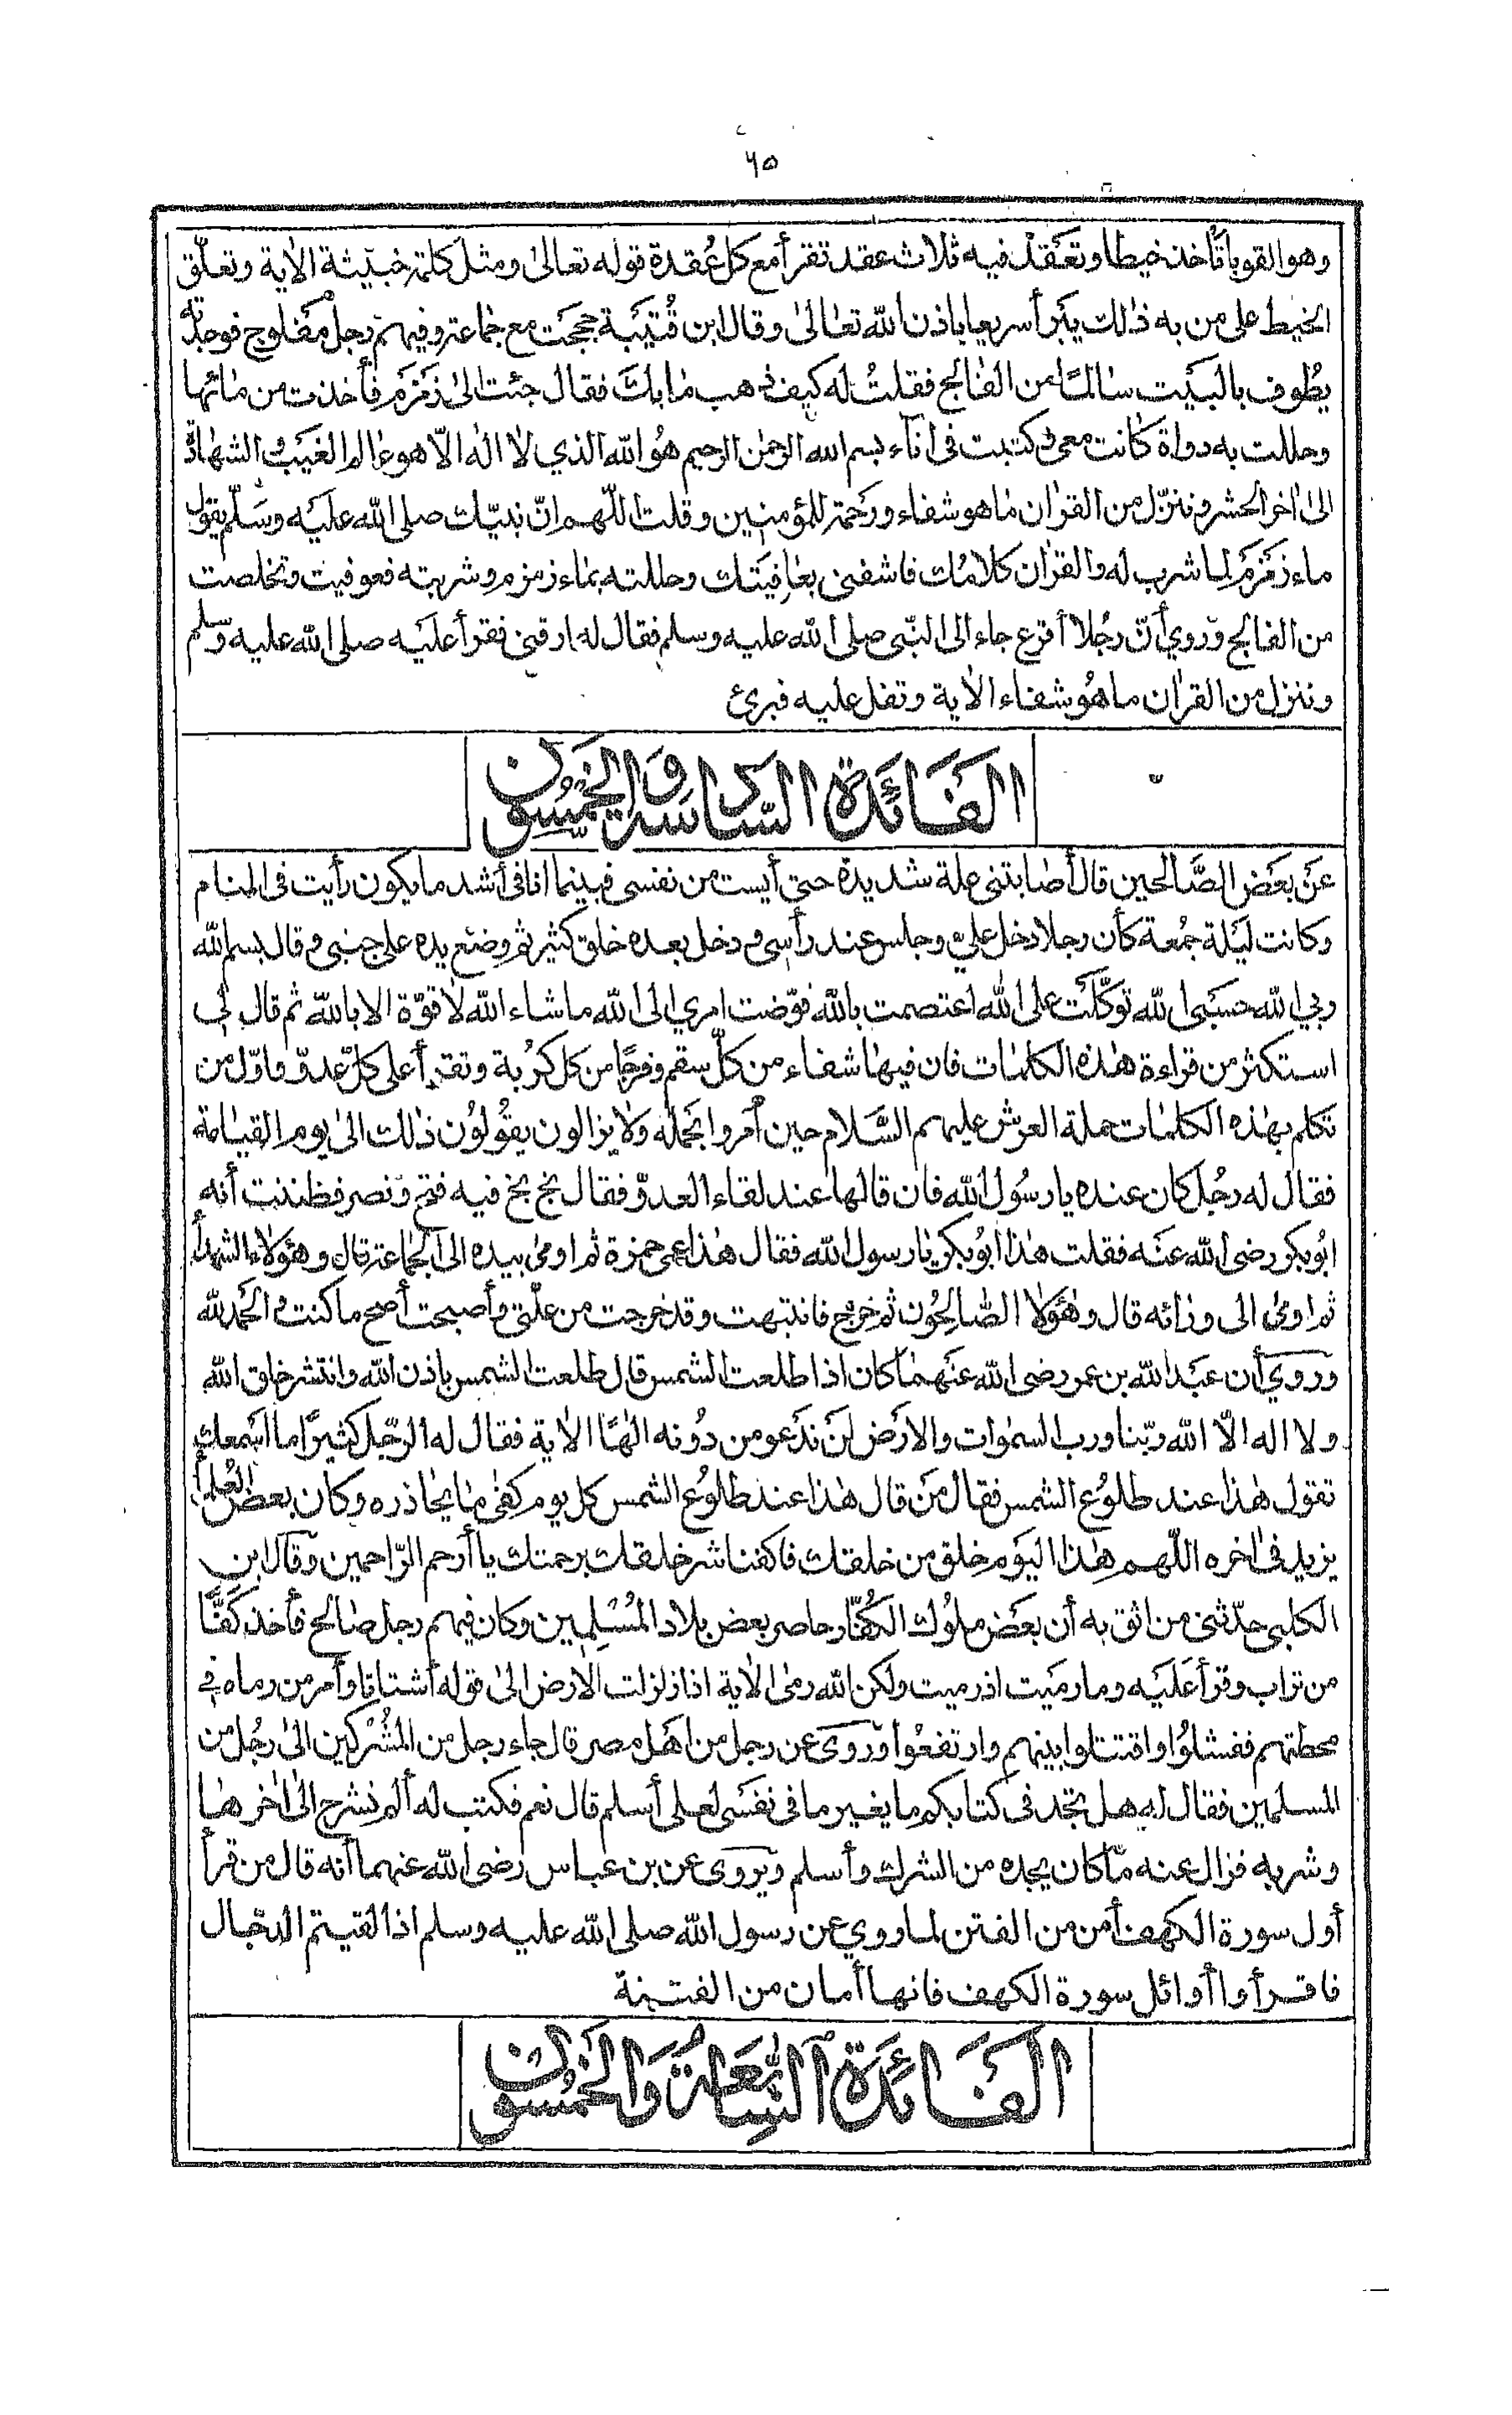 ٦٥
وهو القوبا تأخذ خيطا وتعقد فيه ثلاث عقد تقرأ مع كل عُقدة قوله تعالىٰ ومثل كلمة خبيثة الاٰية وتعلّق
الخيط على من به ذٰلك يبرأ سريعا باذن الله تعالىٰ وقال ابن قُتَيبَة حججت مع جماعة وفيهم رجل مفلوج فوجدته
يطوف بالبيت سالمًا من الفالج فقلتُ له كيف ذهب ما بك فقال جئت الىٰ زمزم فأخذت من مائها
وحللت به دواة كانت معى وكتبت فى اناء بسم الله الرحمٰن الرحيم هُو الله الذي لا الٰه الّا هو عالم الغيب والشهادة
الىٰ اٰخر الحشر وننزّل من القراٰن ما هو شفاء ورحمة للمؤمنين وقلت اللّهم انّ نبيّك صلى الله عليه وسلّم يقول
ماء زمزم لما شرب له والقراٰن كلامك فاشفنى بعافيتك وحللته بماء زمزم وشربته فعوفيت وتخلصت
من الفالج وروي أنّ رجُلا أقرع جاء الى النّبى صلى الله عليه وسلم فقال له ارقنى فقرأ عليه صلى الله عليه وسلم
وننزل من القراٰن ما هُو شفاء الاٰية وتفل عليه فبرئ
الفائدة السادسة والخمسون
عن بعض الصَّالحين قال أصابتنى علة شديدة حتى أيست من نفسى فبينما انا فى أشد ما يكون رأيت فى المنام
وكانت ليلة جمُعة كأن رجلا دخل عليّ وجلس عند رأسى ودخل بعده خلق كثير ثم وضع يده على جنبى وقال بسم الله
ربي الله حسبى الله توكّلت على الله اعتصمت بالله فوّضت امري الى الله ما شاء الله لا قوّة الا بالله ثم قال لي
استكثر من قراءة هٰذه الكلمات فان فيها شفاء من كلّ سقم وفرجًا من كل كرُبة وتقرأ على كلّ عدوّ واوّل من
تكلم بهٰذه الكلمات حملة العرش عليهم السَّلام حين اُمروا بحمله ولا يزالون يقُولوُن ذٰلك الىٰ يوم القيامة
فقال له رجُل كان عنده يا رسُول الله فان قالها عند لقاء العدوّ فقال بخ بخ فيه فتح ونصر فظننت أنه
ابُو بكر رضى الله عنه فقلت هٰذا ابُو بكر يا رسول الله فقال هٰذا عمى حمزة ثم اومىٰ بيده الى الجماعة قال وهؤلاء الشهدأ
ثم اومىٰ الى ورائه قال وهٰؤلاء الصّالِحُون ثم خرج فانتبهت وقد خرجت من علّتى وأصبحت أصح ما كنت والحمد لله
وروي أن عبد الله بن عمر رضى الله عنهما كان اذا طلعت الشمس قال طلعت الشمس باذن الله وانتشر خلق الله
ولا اله الّا الله ربّنا ورب السمٰوات والارض لن ندعو من دوُنه الٰهًا الاٰية فقال له الرّجل كثيرًا ما اسمعك
تقول هٰذا عند طلوُع الشمس فقال من قال هٰذا عند طلوُع الشمس كل يوم كفى ما يحاذره وكان بعض العُلمأ
يزيد فى اٰخره اللّهم هٰذا اليوم خلق من خلقك فاكفنا شر خلقك برحمتك يا أرحم الرّاحمين وقال ابن
الكلبى حدّثنى من اثق به أن بعض ملوُك الكُفّار حاصر بعض بلاد المُسْلِمين وكان فيهم رجل صالح فأخذ كفًّا
من تراب وقرأ عليه وما رميت اذ رميت ولٰكن الله رمىٰ الاٰية اذا زلزلت الارض الىٰ قوله أشتاتا وأمر من رماه في
محطتهم ففشلوُا واقتتلوا بينهم وارتفعُوا وروى عن رجل من اهل مصر قال جاء رجل من المُشركين الىٰ رجُل من
المسلمين فقال له هل تجد فى كتابكم ما يغير ما فى نفسى لعلى أسلم قال نعم فكتب له ألم نشرح الىٰ اٰخرها
وشربه فزال عنه ما كان يجده من الشرك وأسلم ويروى عن بن عباس رضى الله عنهما أنه قال من قرأ
أول سورة الكهف أمن من الفتن لما روي عن رسول الله صلى الله عليه وسلم اذا لقيتم الدجّال
فاقرأوا أوائل سورة الكهف فانها أمان من الفتنة
الفائدة السابعة والخمسون